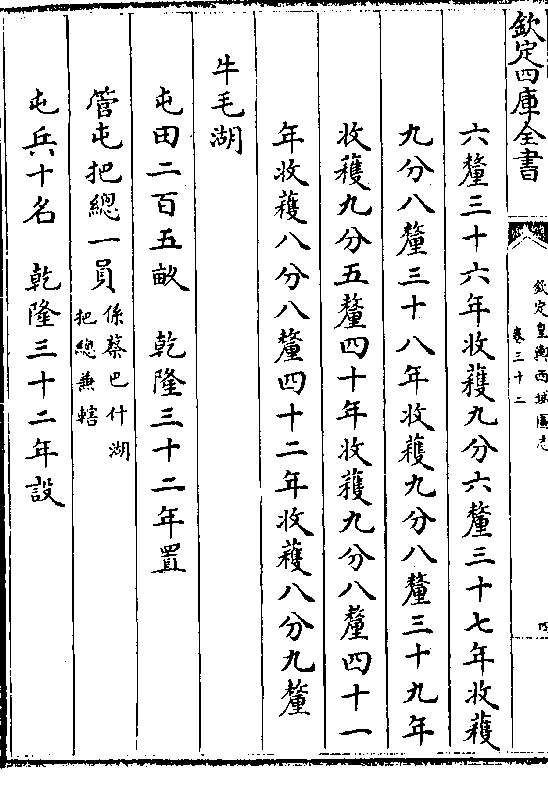 欽定四庫全書
欽定皇輿西域圖志
卷三十二
六釐三十六年收穫九分六釐三十七年收穫
九分八釐三十八年收穫九分八釐三十九年
收穫九分五釐四十年收穫九分八釐四十一
年收穫八分八釐四十二年收穫八分九釐
牛毛湖
屯田二百五畝　乾隆三十二年置
管屯把總一員係蔡巴什湖
把總兼轄
屯兵十名　乾隆三十二年設